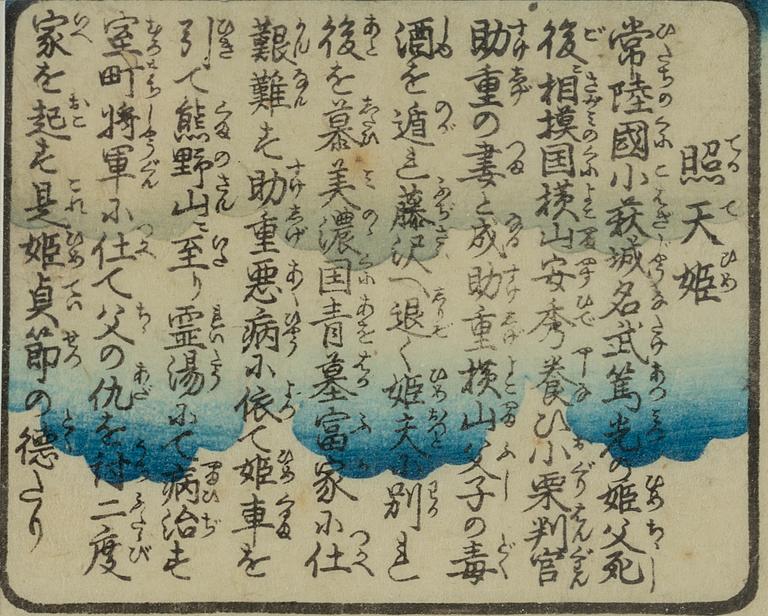 照天姫
常陸國小萩城名武篤光の姫父死
後ニ相摸国横山安秀養ひ小栗判官
助重の妻と成助重横山父子の毒
酒を遁れ藤沢へ退く姫夫に別れ
後を慕美濃国青墓富家に仕
艱難す助重悪病に依て姫車を
引て熊野山ニ至り霊湯にて病治す
室町将軍に仕て父の仇を討二度
家を起す是姫貞節の徳たり